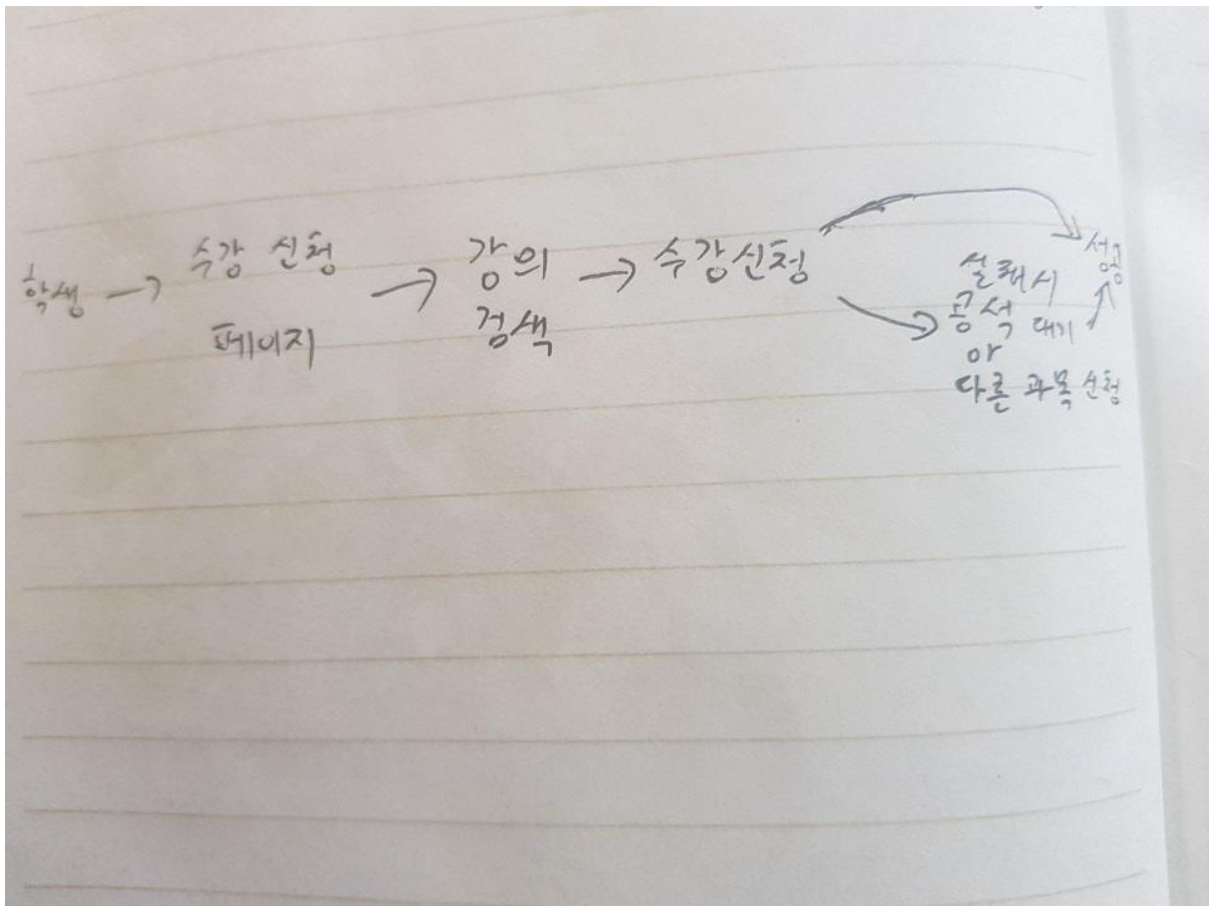 학생 → 수강 신청
페이지
→ 강의
검색
→ 수강신청
→ 성공
→ 실패시
공석 대기 ↗
or
다른 과목 신청